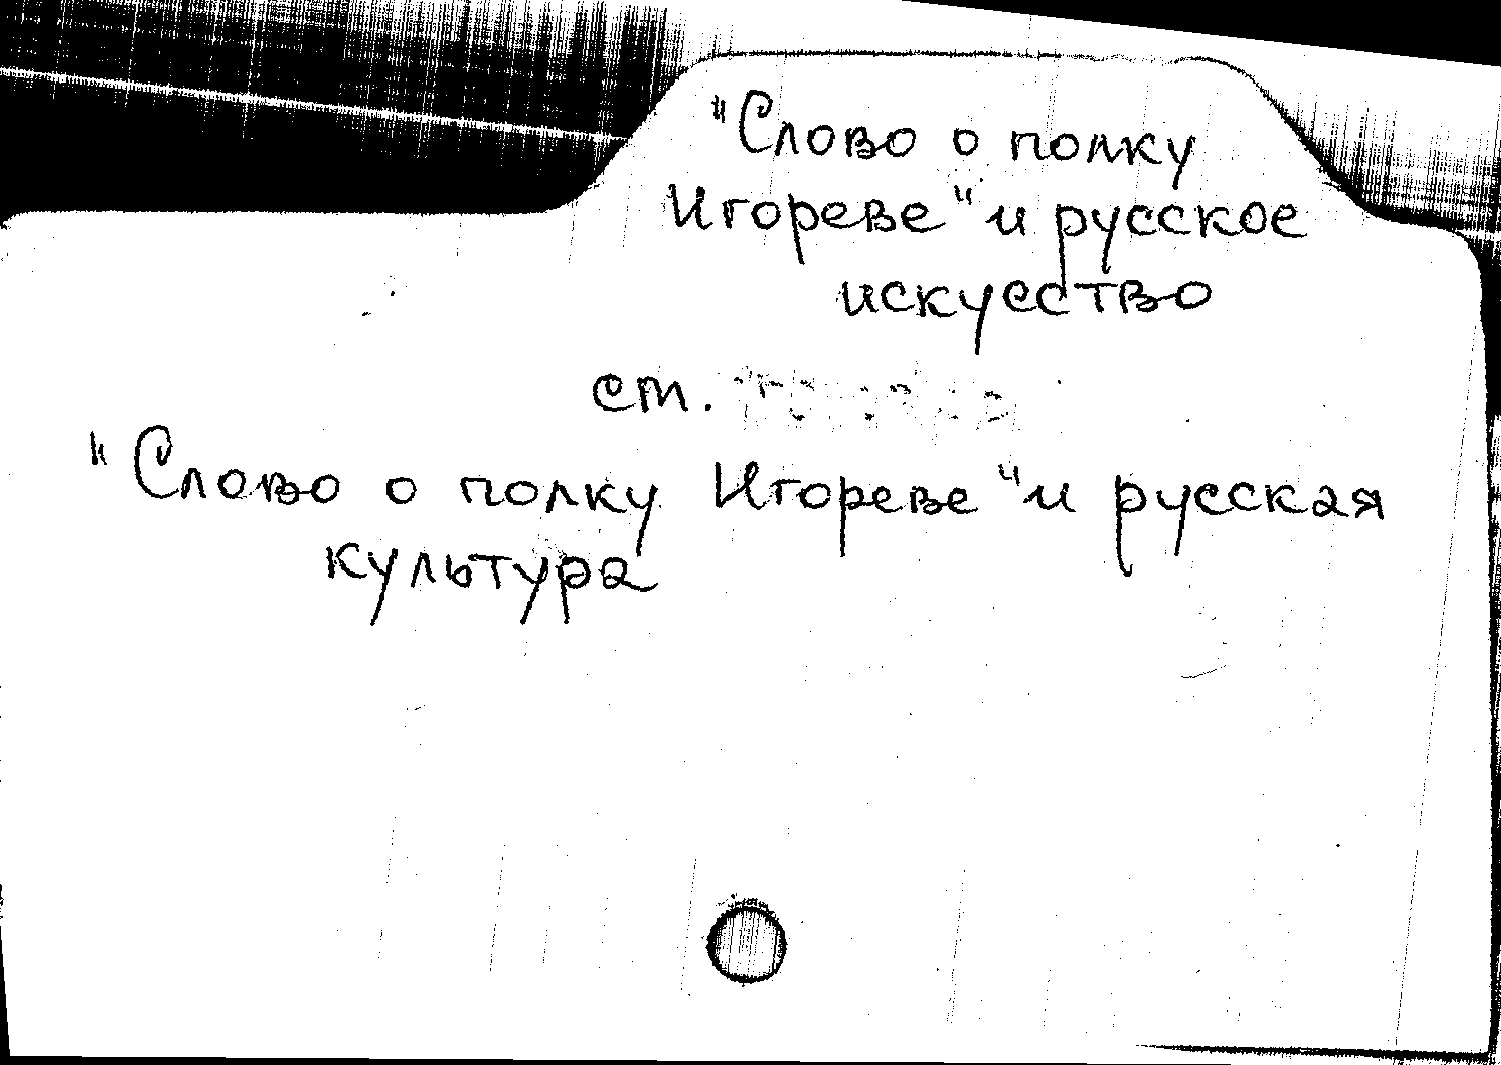 "Слово о полку
Игореве" и русское
искусство
ст.
"Слово о полку Игореве" и русская
культура